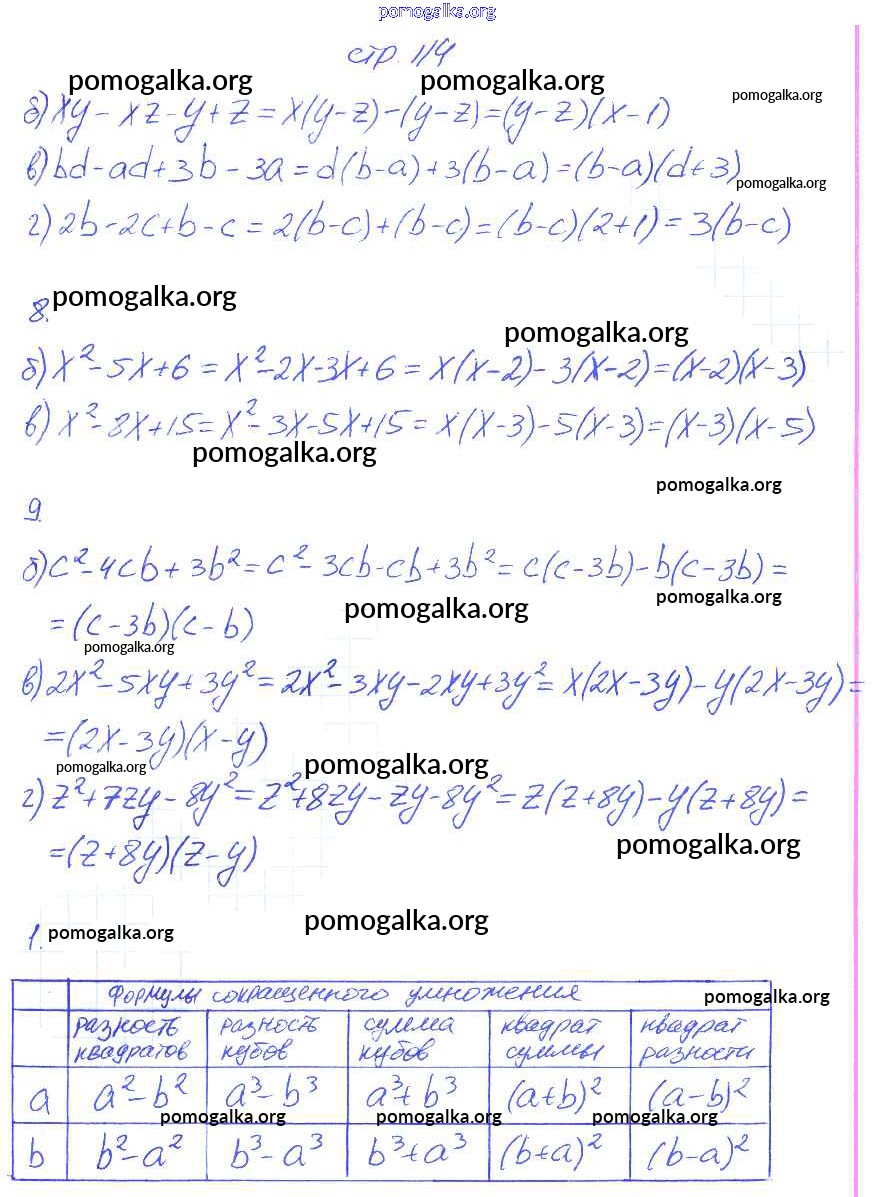 pomogalka.org
стр. 114
pomogalka.org pomogalka.org pomogalka.org
б) xy - xz - y + z = x(y-z) - (y-z) = (y-z)(x-1)
в) bd - ad + 3b - 3a = d(b-a) + 3(b-a) = (b-a)(d+3)
pomogalka.org
г) 2b - 2c + b - c = 2(b-c) + (b-c) = (b-c)(2+1) = 3(b-c)
8. pomogalka.org
pomogalka.org
б) x² - 5x + 6 = x² - 2x - 3x + 6 = x(x-2) - 3(x-2) = (x-2)(x-3)
в) x² - 8x + 15 = x² - 3x - 5x + 15 = x(x-3) - 5(x-3) = (x-3)(x-5)
pomogalka.org
pomogalka.org
9.
б) c² - 4cb + 3b² = c² - 3cb - cb + 3b² = c(c-3b) - b(c-3b) =
pomogalka.org pomogalka.org
= (c-3b)(c-b)
pomogalka.org
в) 2x² - 5xy + 3y² = 2x² - 3xy - 2xy + 3y² = x(2x-3y) - y(2x-3y) =
= (2x-3y)(x-y)
pomogalka.org pomogalka.org
г) z² + 7zy - 8y² = z² + 8zy - zy - 8y² = z(z+8y) - y(z+8y) =
pomogalka.org
= (z+8y)(z-y)
pomogalka.org
1. pomogalka.org
Формулы сокращенного умножения
pomogalka.org
разность квадратов
разность кубов
сумма кубов
квадрат суммы
квадрат разности
a a² - b² a³ - b³ a³ + b³ (a+b)² (a-b)²
pomogalka.org pomogalka.org pomogalka.org
b b² - a² b³ - a³ b³ + a³ (b+a)² (b-a)²